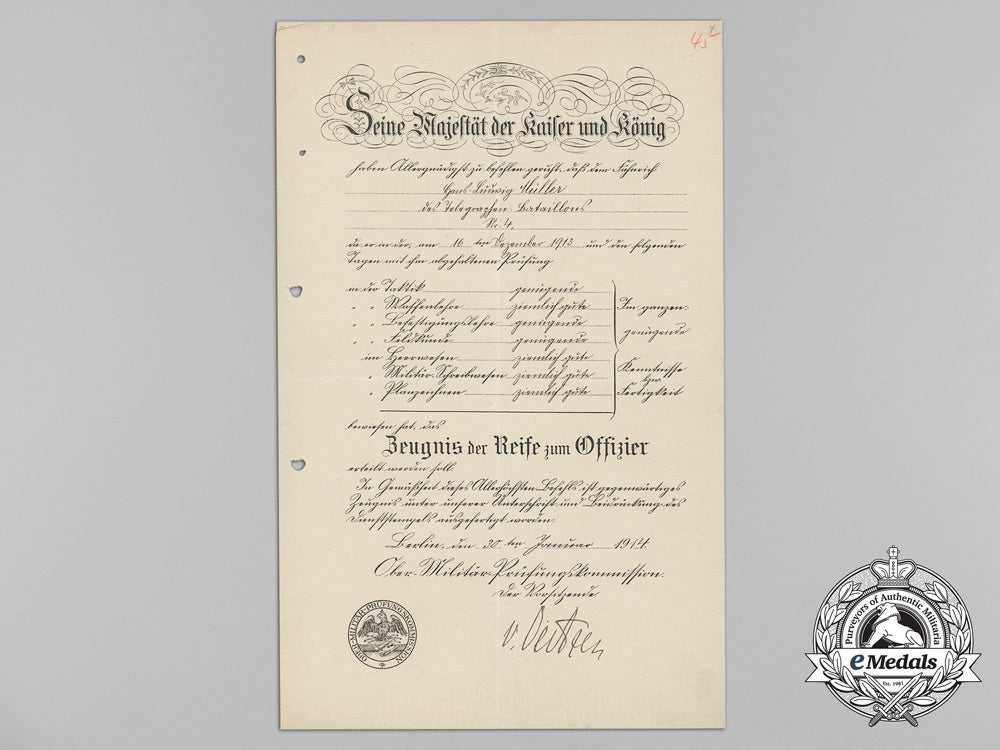 45
Seine Majestät der Kaiser und König
haben Allergnädigst zu befehlen geruht, daß dem Fähnrich
Hans Ludwig Müller
des Telegraphen-Bataillons
Nr. 4.
da er in der, am 16 ten Dezember 1913 und den folgenden
Tagen mit ihm abgehaltenen Prüfung
in der Taktik genügende
" " Waffenlehre ziemlich gute
" " Befestigungslehre genügende
" " Feldkunde genügende
im Heerwesen ziemlich gute
" Militär-Schreibwesen ziemlich gute
" Planzeichnen ziemlich gute
Im ganzen:
genügende
Kenntnisse
bzw.
Fertigkeit
bewiesen hat, das
Zeugnis der Reife zum Offizier
erteilt werden soll.
In Gemäßheit dieses Allerhöchsten Befehls ist gegenwärtiges
Zeugnis unter unserer Unterschrift und Beidrückung des
Dienststempels ausgefertigt worden.
Berlin, den 30 ten Januar 1914.
Ober-Militär-Prüfungskommission.
Der Vorsitzende.
OBER-MILITÄR-PRÜFUNGSKOMMISSION
Purveyors of Authentic Militaria
eMedals
Est. 1981